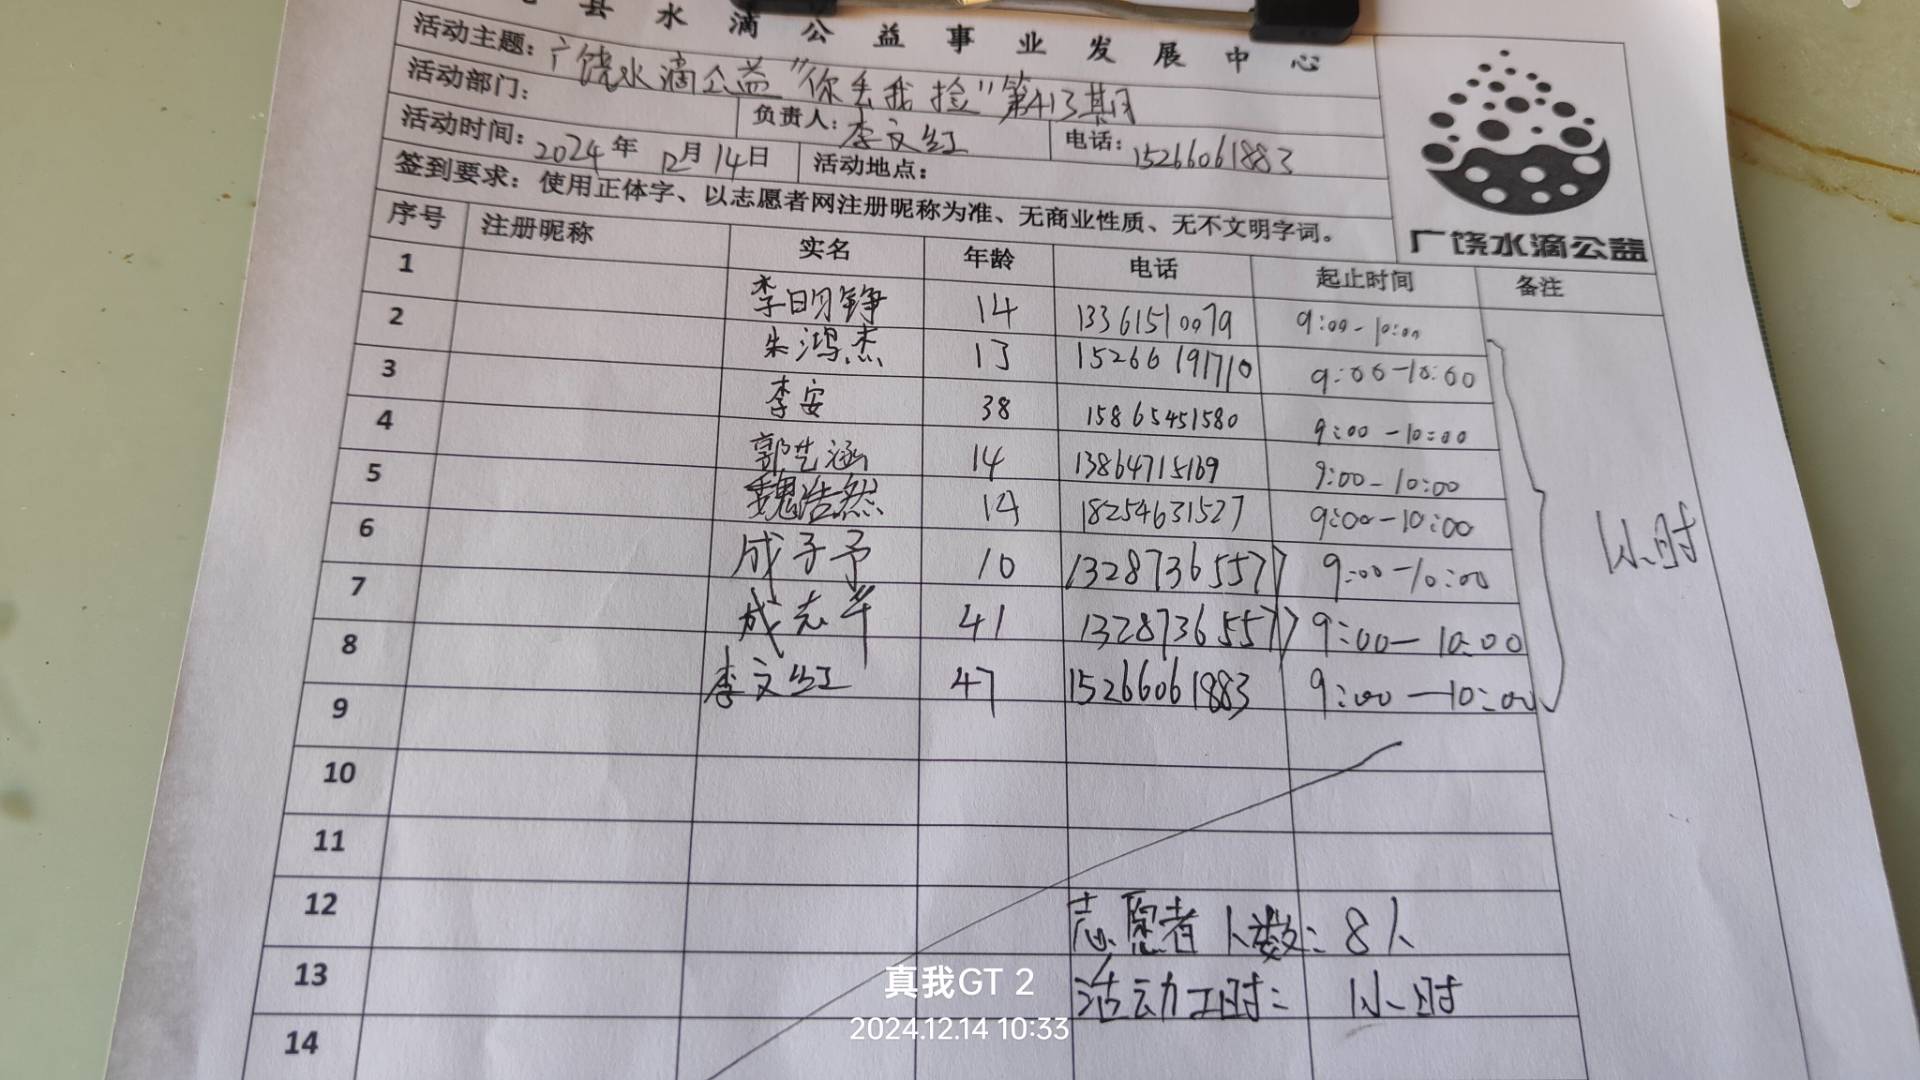 县水滴公益事业发展中心
活动主题：广饶水滴公益"你丢我捡"第413期
活动部门： 负责人：李文红 电话：15266061883
活动时间：2024年12月14日 活动地点：
签到要求：使用正体字、以志愿者网注册昵称为准、无商业性质、无不文明字词。
广饶水滴公益
序号 注册昵称 实名 年龄 电话 起止时间 备注
1 李明铮 14 13361510079 9:00-10:00
2 朱鸿杰 13 15266191710 9:00-10:00
3 李安 38 15865451580 9:00-10:00
4 郭艺涵 14 13864715169 9:00-10:00
5 魏浩然 14 18254631527 9:00-10:00
6 成子予 10 13287365577 9:00-10:00
7 成志华 41 13287365577 9:00-10:00
8 李文红 47 15266061883 9:00-10:00
1小时
9
10
11
12 志愿者人数：8人
13 活动工时：1小时
14
真我GT 2
2024.12.14 10:33